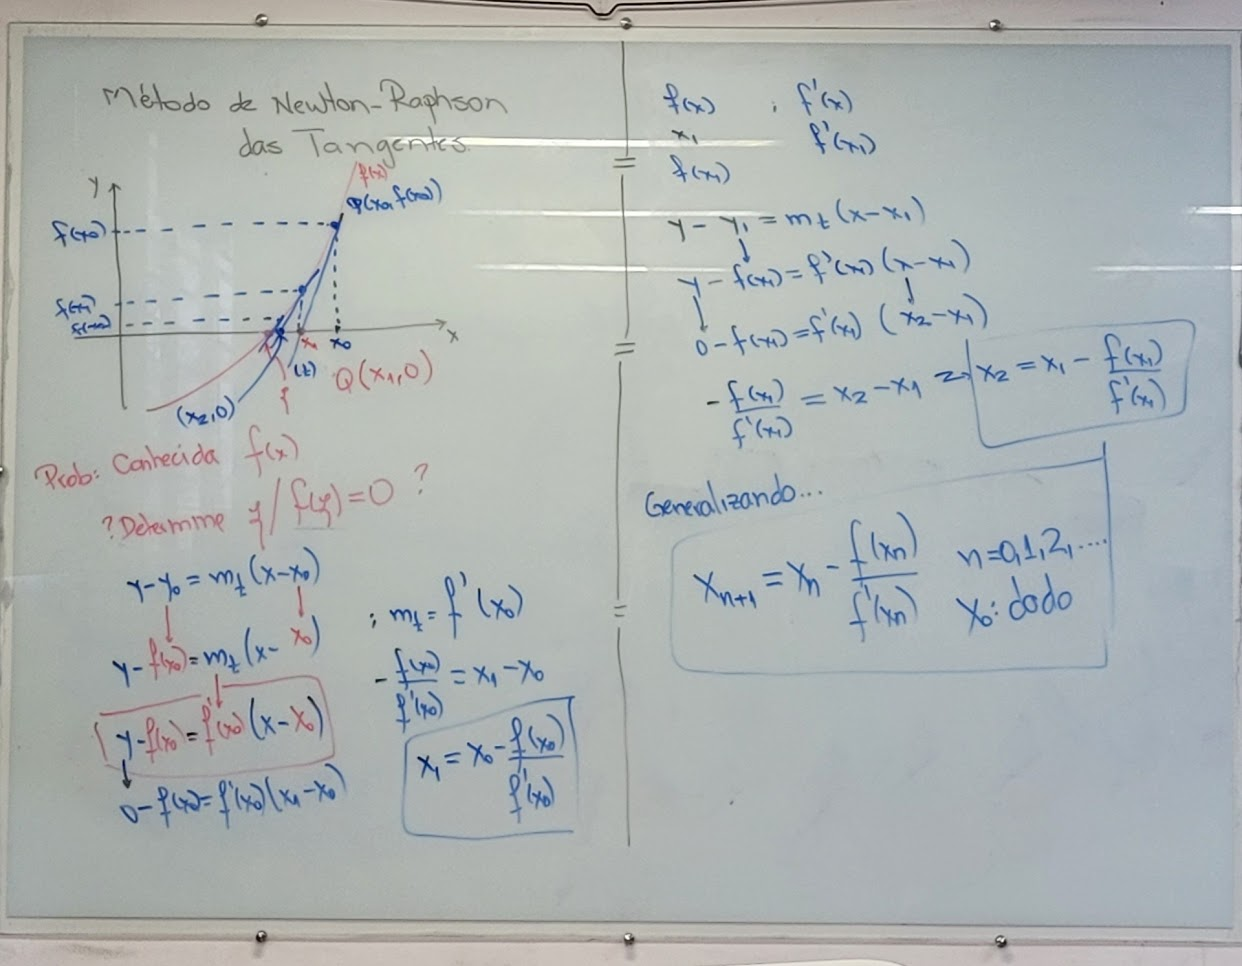 Método de Newton-Raphson
das Tangentes
y
f(x)
P(x0, f(x0))
f(x0)
f(x1)
f(x2)
x1 x0 x
(t) Q(x1,0)
(x2,0)
Prob: Conhecida f(x)
? Determine ξ / f(ξ)=0 ?
y-y0 = mt(x-x0)
y-f(x0)=mt(x-x0)
y-f(x0)=f'(x0)(x-x0)
0-f(x0)=f'(x0)(x1-x0)
; mt = f'(x0)
-f(x0)/f'(x0) = x1-x0
x1 = x0 - f(x0)/f'(x0)
f(x) ; f'(x)
x1 f'(x1)
f(x1)
y - y1 = mt(x-x1)
y - f(x1) = f'(x1)(x-x1)
0 - f(x1) = f'(x1) (x2-x1)
-f(x1)/f'(x1) = x2-x1 => x2 = x1 - f(x1)/f'(x1)
Generalizando...
xn+1 = xn - f(xn)/f'(xn) n=0,1,2,....
x0: dado